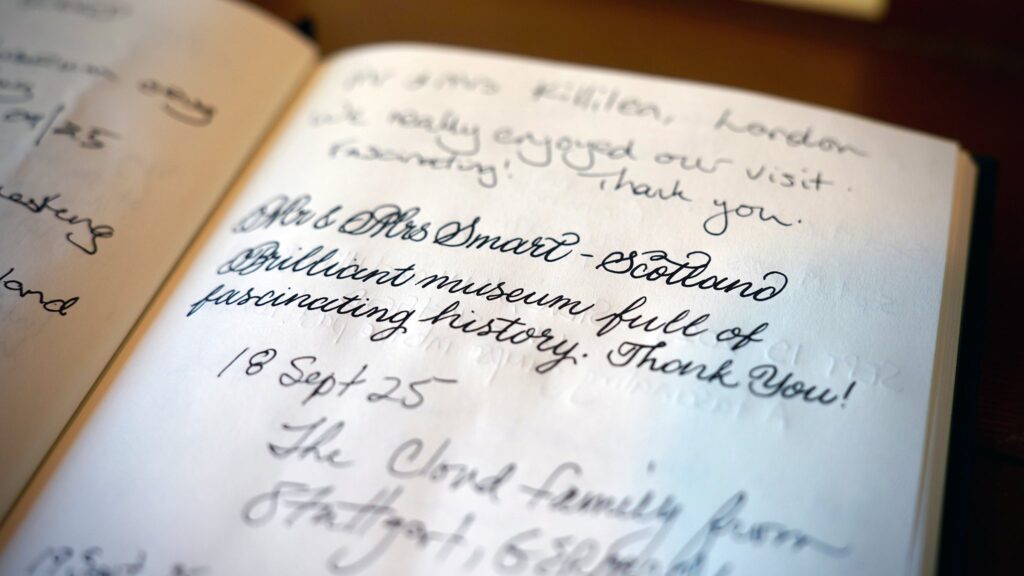 09/25
land
Mrs Killilea, London
We really enjoyed our visit.
Fascinating! Thank you.
Mr & Mrs Smart - Scotland
Brilliant museum full of
fascinating history. Thank You!
18 Sept 25
The Cloud family from
Stuttgart,
19 Sept 25